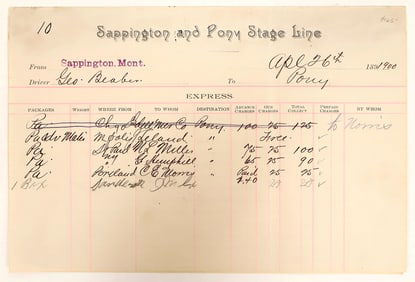 10
Sappington and Pony Stage Line
From Sappington, Mont. Apl 26th 1891900
Driver Geo. Beaber To Pony
EXPRESS.
PACKAGES WEIGHT WHERE FROM TO WHOM DESTINATION ADVANCE CHARGES OUR CHARGES TOTAL COLLECT PREPAID CHARGES BY WHOM
Pa Mer Co Pony 100 25 125 to Norris
M " Free
Pa St Paul Miller " 75 25 100 ✓
Pa NY Hemphill " 65 25 90 ✓
Pa Portland C E Morris " Paid 25 25 ✓
1 Box 2.40 ✓